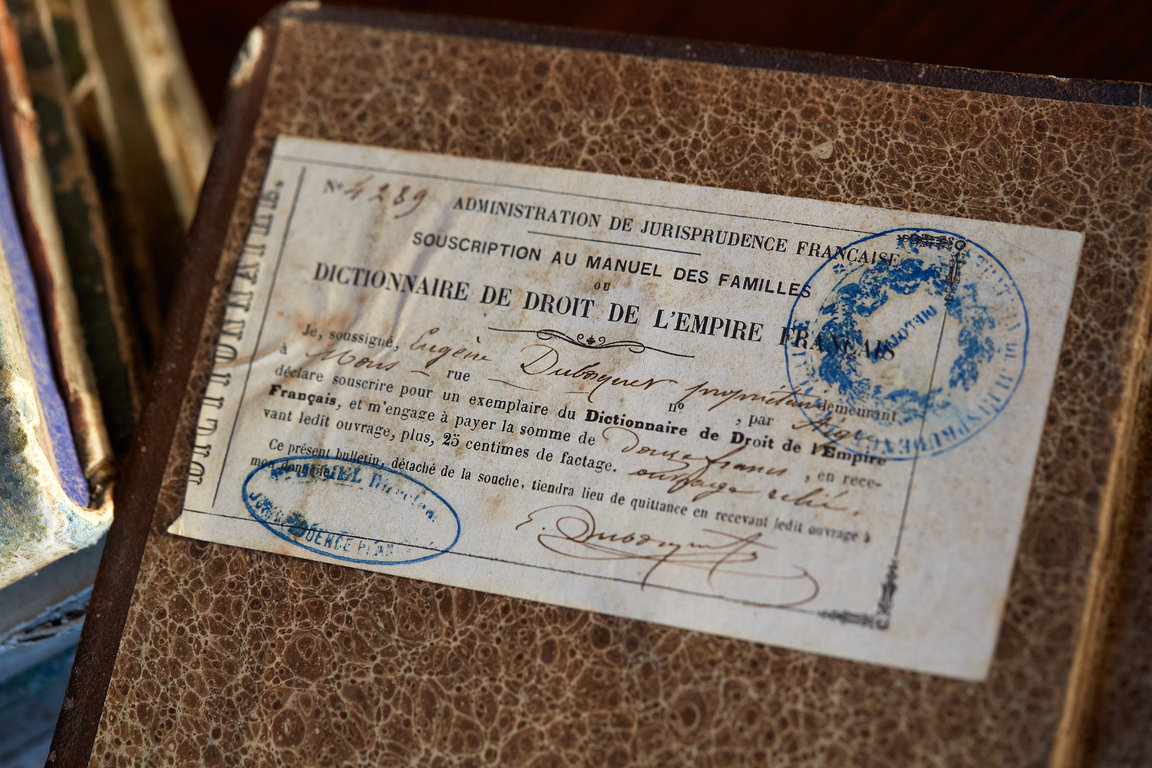 Nº 4289
ADMINISTRATION DE JURISPRUDENCE FRANÇAISE
SOUSCRIPTION AU MANUEL DES FAMILLES
OU
DICTIONNAIRE DE DROIT DE L'EMPIRE FRANÇAIS
Je, soussigné, Eugène Dubosquet propriétaire demeurant
à Mons rue nº , par
déclare souscrire pour un exemplaire du Dictionnaire de Droit de l'Empire
Français, et m'engage à payer la somme de douze francs, en rece-
vant ledit ouvrage, plus, 25 centimes de factage. ouvrage relié.
Ce présent bulletin, détaché de la souche, tiendra lieu de quittance en recevant ledit ouvrage à
mon domicile.
E. Dubosquet